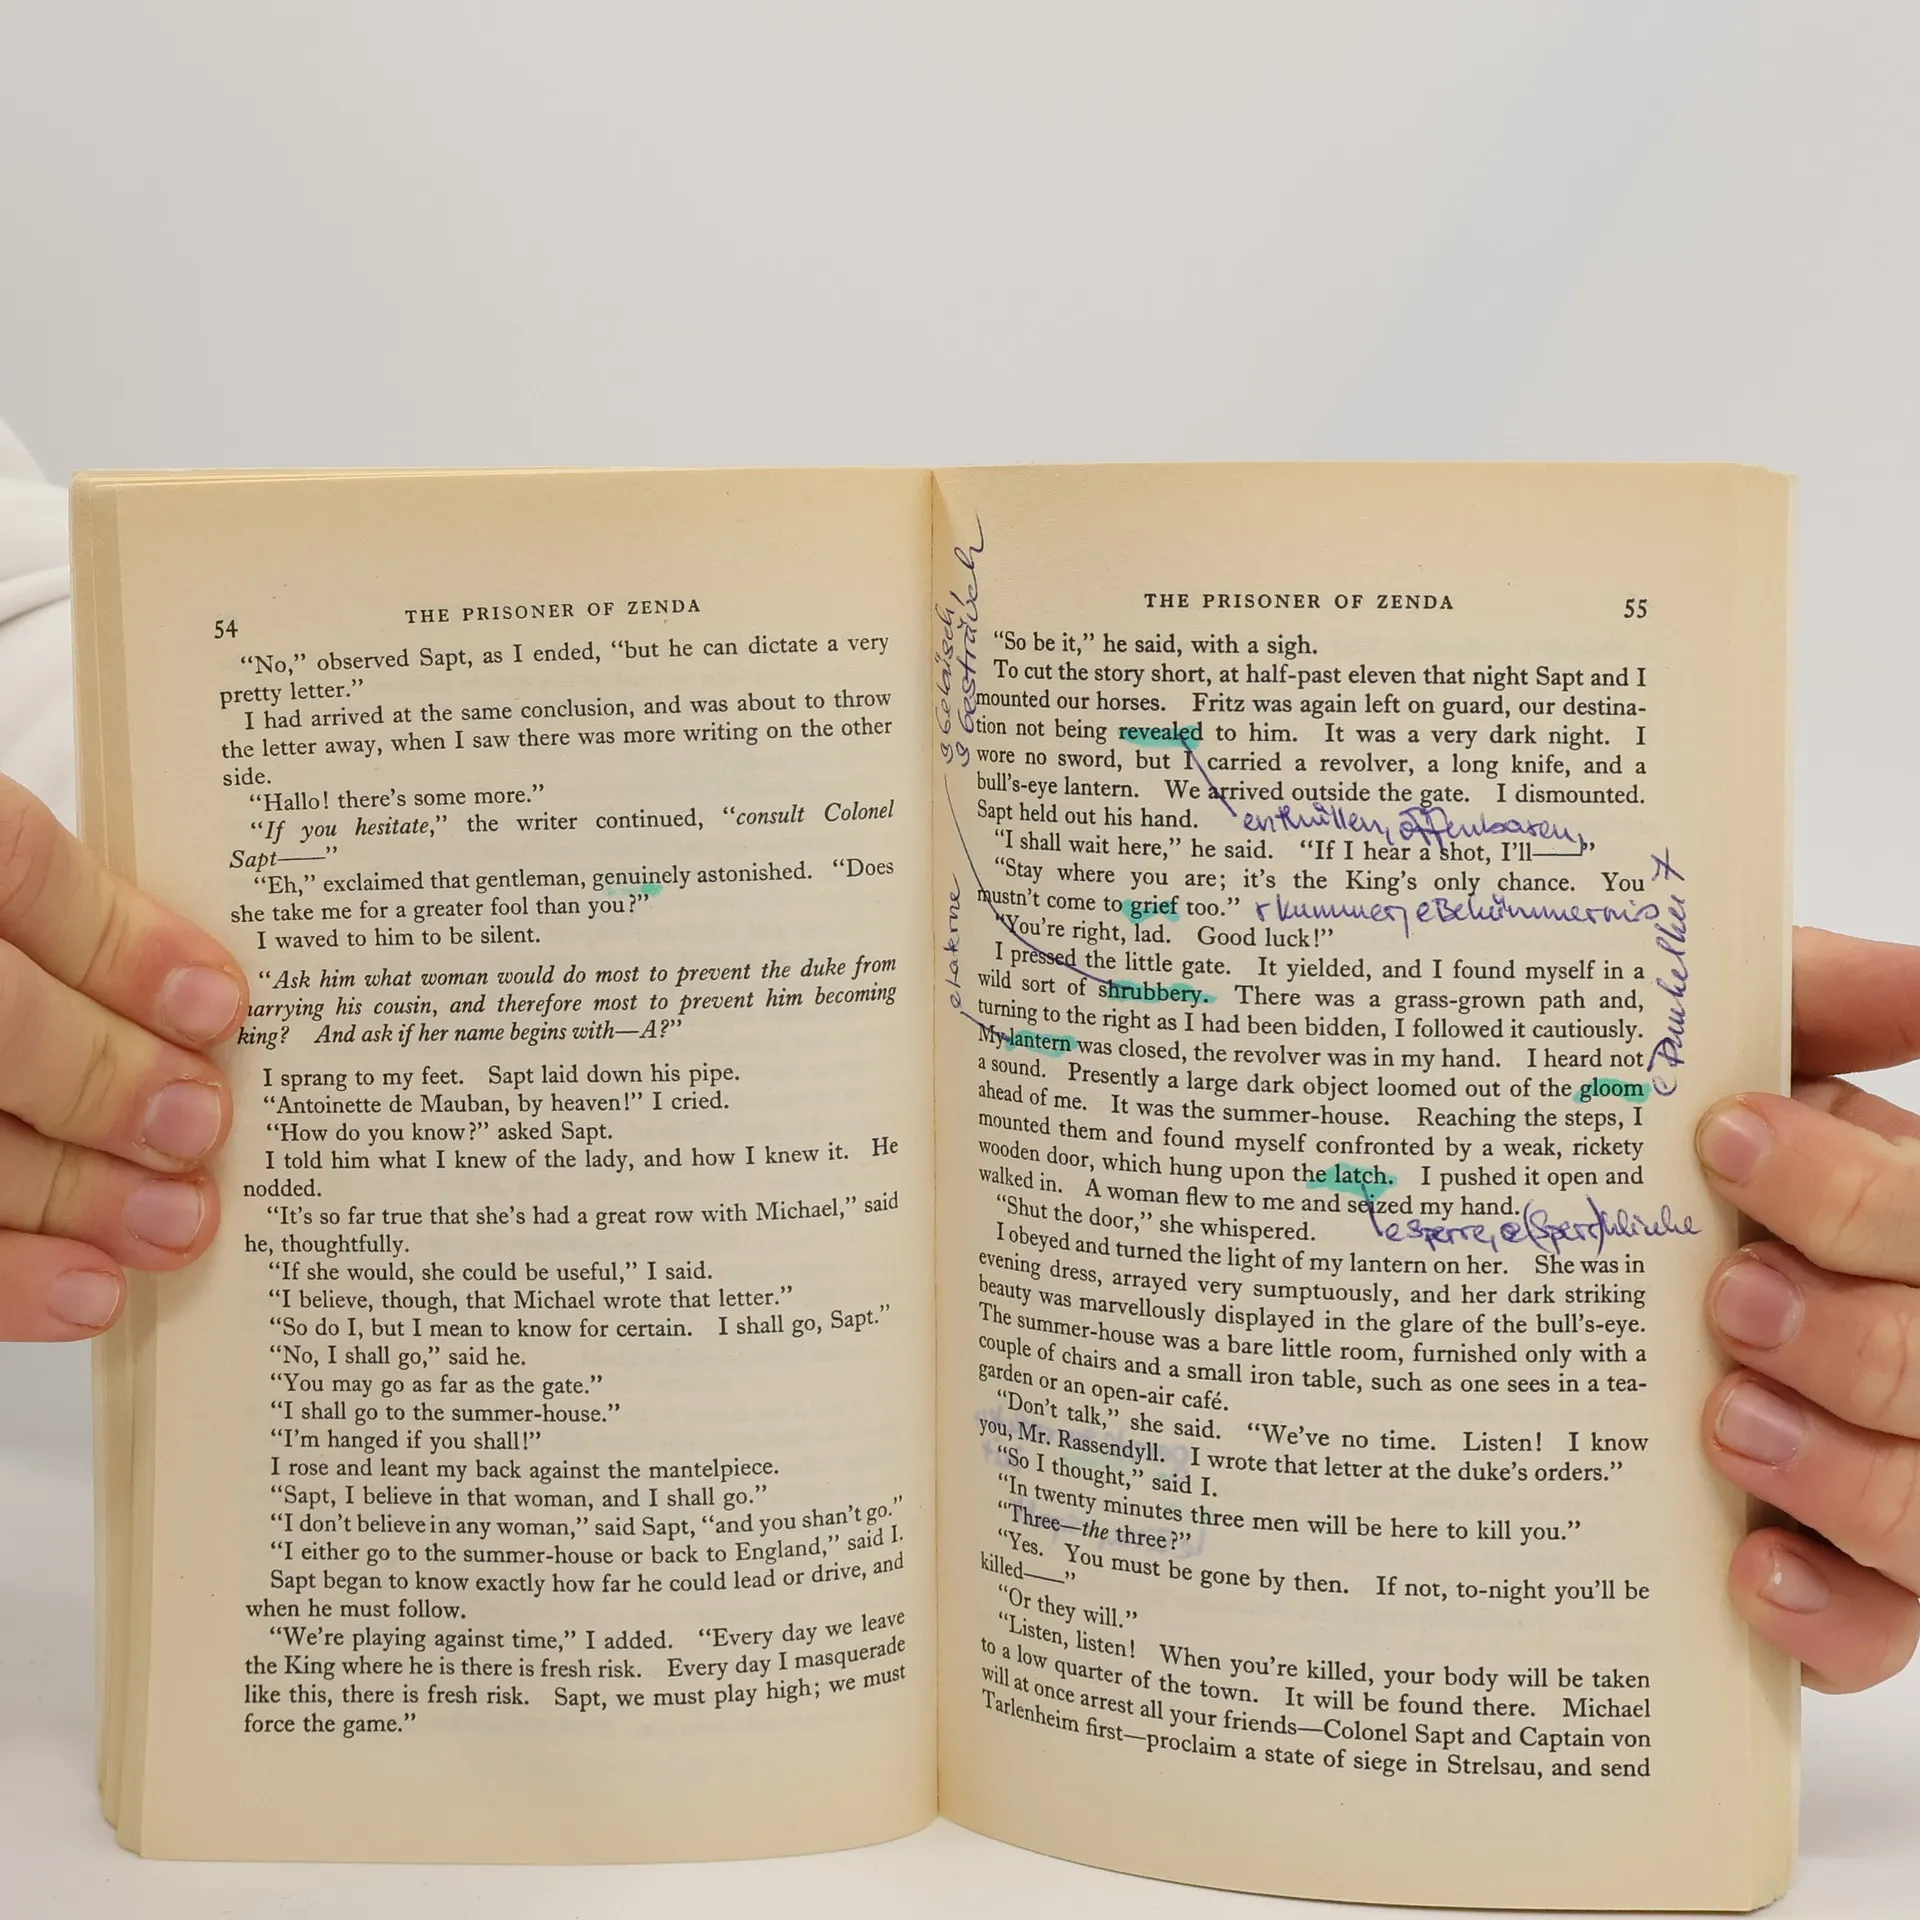 54
THE PRISONER OF ZENDA
“No,” observed Sapt, as I ended, “but he can dictate a very
pretty letter.”
I had arrived at the same conclusion, and was about to throw
the letter away, when I saw there was more writing on the other
side.
“Hallo! there’s some more.”
“If you hesitate,” the writer continued, “consult Colonel
Sapt——”
“Eh,” exclaimed that gentleman, genuinely astonished. “Does
she take me for a greater fool than you?”
I waved to him to be silent.
“Ask him what woman would do most to prevent the duke from
marrying his cousin, and therefore most to prevent him becoming
king? And ask if her name begins with—A?”
I sprang to my feet. Sapt laid down his pipe.
“Antoinette de Mauban, by heaven!” I cried.
“How do you know?” asked Sapt.
I told him what I knew of the lady, and how I knew it. He
nodded.
“It’s so far true that she’s had a great row with Michael,” said
he, thoughtfully.
“If she would, she could be useful,” I said.
“I believe, though, that Michael wrote that letter.”
“So do I, but I mean to know for certain. I shall go, Sapt.”
“No, I shall go,” said he.
“You may go as far as the gate.”
“I shall go to the summer-house.”
“I’m hanged if you shall!”
I rose and leant my back against the mantelpiece.
“Sapt, I believe in that woman, and I shall go.”
“I don’t believe in any woman,” said Sapt, “and you shan’t go.”
“I either go to the summer-house or back to England,” said I.
Sapt began to know exactly how far he could lead or drive, and
when he must follow.
“We’re playing against time,” I added. “Every day we leave
the King where he is there is fresh risk. Every day I masquerade
like this, there is fresh risk. Sapt, we must play high; we must
force the game.”
THE PRISONER OF ZENDA
55
“So be it,” he said, with a sigh.
To cut the story short, at half-past eleven that night Sapt and I
mounted our horses. Fritz was again left on guard, our destina-
tion not being revealed to him. It was a very dark night. I
wore no sword, but I carried a revolver, a long knife, and a
bull’s-eye lantern. We arrived outside the gate. I dismounted.
Sapt held out his hand.
enthüllen, offenbaren,
“I shall wait here,” he said. “If I hear a shot, I’ll——”
“Stay where you are; it’s the King’s only chance. You
mustn’t come to grief too.” r Kummer, e Bekümmernis
“You’re right, lad. Good luck!”
I pressed the little gate. It yielded, and I found myself in a
wild sort of shrubbery. There was a grass-grown path and,
turning to the right as I had been bidden, I followed it cautiously.
My lantern was closed, the revolver was in my hand. I heard not
a sound. Presently a large dark object loomed out of the gloom
ahead of me. It was the summer-house. Reaching the steps, I
mounted them and found myself confronted by a weak, rickety
wooden door, which hung upon the latch. I pushed it open and
walked in. A woman flew to me and seized my hand.
“Shut the door,” she whispered.
e Sperre, e (Sperr)klinke
I obeyed and turned the light of my lantern on her. She was in
evening dress, arrayed very sumptuously, and her dark striking
beauty was marvellously displayed in the glare of the bull’s-eye.
The summer-house was a bare little room, furnished only with a
couple of chairs and a small iron table, such as one sees in a tea-
garden or an open-air café.
“Don’t talk,” she said. “We’ve no time. Listen! I know
you, Mr. Rassendyll. I wrote that letter at the duke’s orders.”
“So I thought,” said I.
“In twenty minutes three men will be here to kill you.”
“Three—the three?”
“Yes. You must be gone by then. If not, to-night you’ll be
killed——”
“Or they will.”
“Listen, listen! When you’re killed, your body will be taken
to a low quarter of the town. It will be found there. Michael
will at once arrest all your friends—Colonel Sapt and Captain von
Tarlenheim first—proclaim a state of siege in Strelsau, and send
s Gesträuch
e Dunkelheit